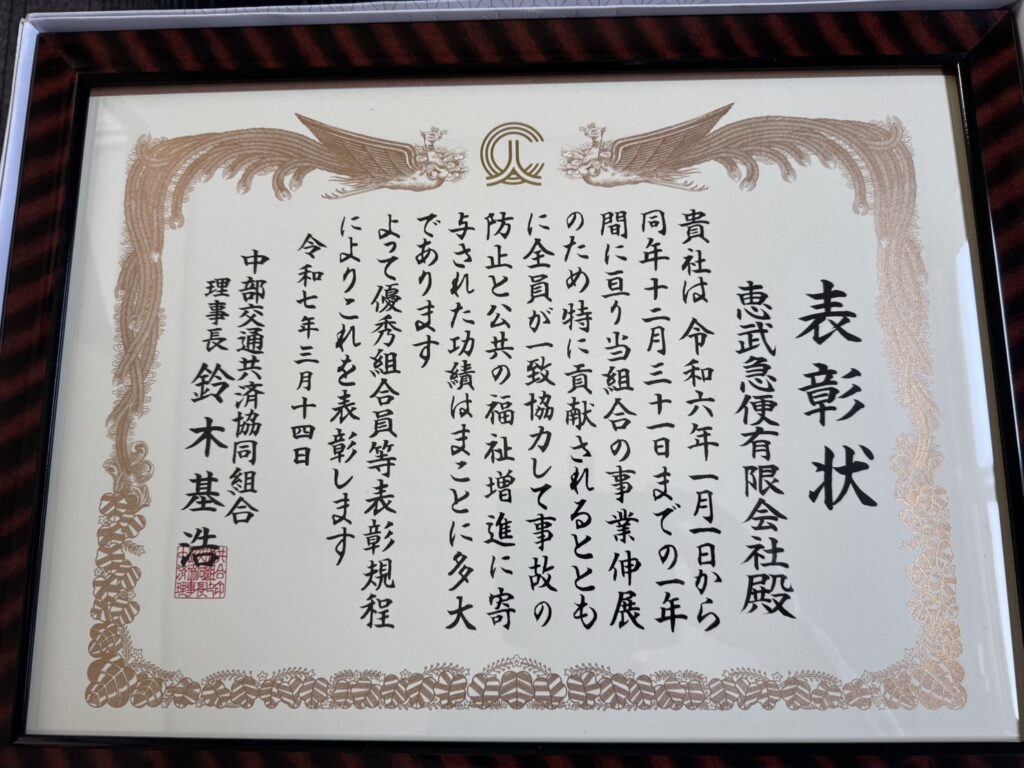 表彰状
恵武急便有限会社殿
貴社は 令和六年一月一日から
同年十二月三十一日までの一年
間に亘り当組合の事業伸展
のため特に貢献されるととも
に全員が一致協力して事故の
防止と公共の福祉増進に寄
与された功績はまことに多大
であります
よって優秀組合員等表彰規程
によりこれを表彰します
令和七年三月十四日
中部交通共済協同組合
理事長 鈴木基浩